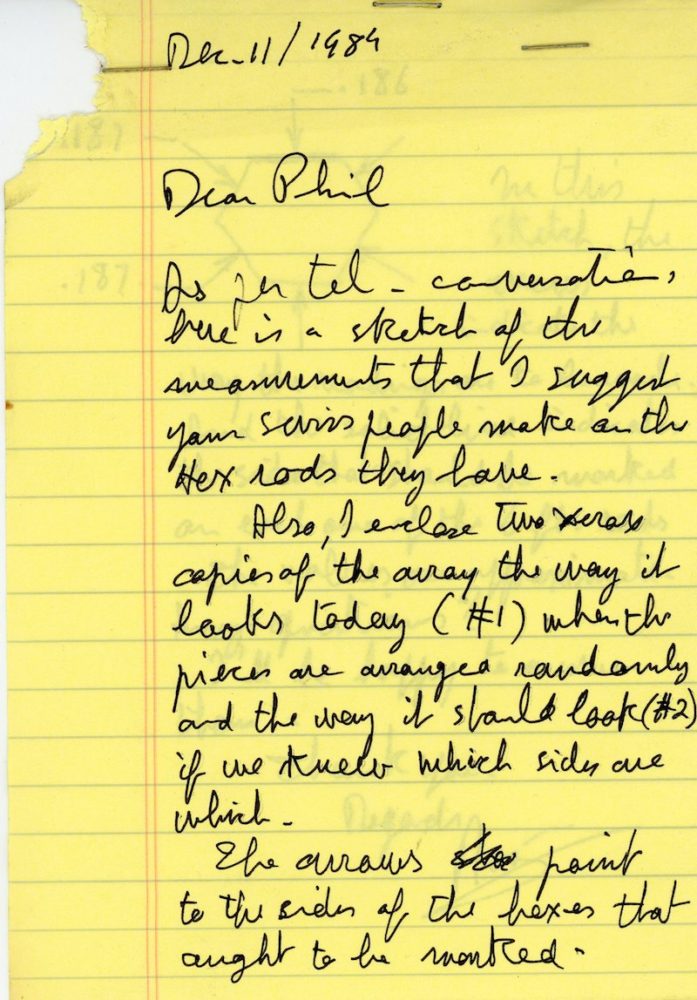 Dec-11/1984
Dear Phil
As per tel - conversation,
here is a sketch of the
measurements that I suggest
your Swiss people make on the
Hex rods they have.
Also, I enclose two xerox
copies of the array the way it
looks today (#1) when the
pieces are arranged randomly
and the way it should look (#2)
if we knew which sides are
which -
The arrows point
to the sides of the hexes that
aught to be marked.
.186
.187
.187
In this
sketch the